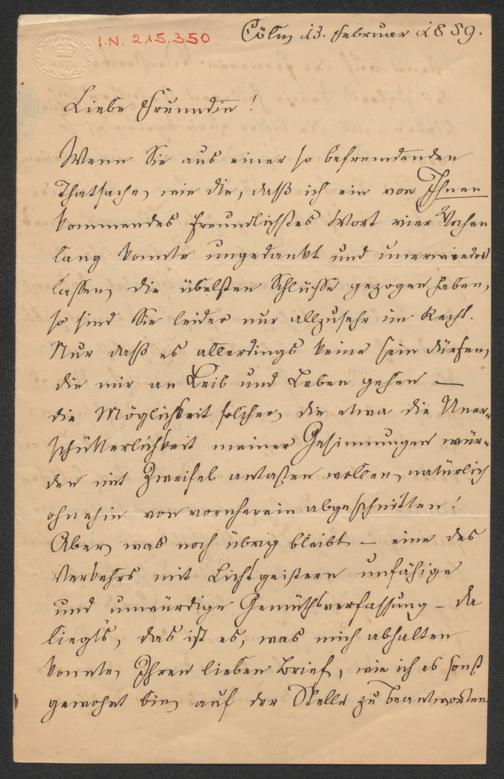 I.N. 215.350
Cöln 13. Februar 1889.
Liebe Freundin!
Wenn Sie aus einer so befremdenden
Thatsache, wie die, daß ich ein von Ihnen
kommendes freundlichstes Wort vier Wochen
lang konnte ungedankt und unerwiedert
lassen, die übelsten Schlüsse gezogen haben,
so sind Sie leider nur allzusehr im Recht.
Nur daß es allerdings keine sein dürfen,
die mir an Leib und Leben gehen —
die Möglichkeit solcher, die etwa die Uner-
schütterlichkeit meiner Gesinnungen wür-
den mit Zweifel antasten wollen, natürlich
ohnehin von vornherein abgeschnitten!
Aber, was noch übrig bleibt – eine des
Verkehrs mit Lichtgeistern unfähige
und unwürdige Gemüthsverfassung – da
liegt's, das ist es, was mich abhalten
konnte, Ihren lieben Brief, wie ich es sonst
gewohnt bin, auf der Stelle zu beantworten.